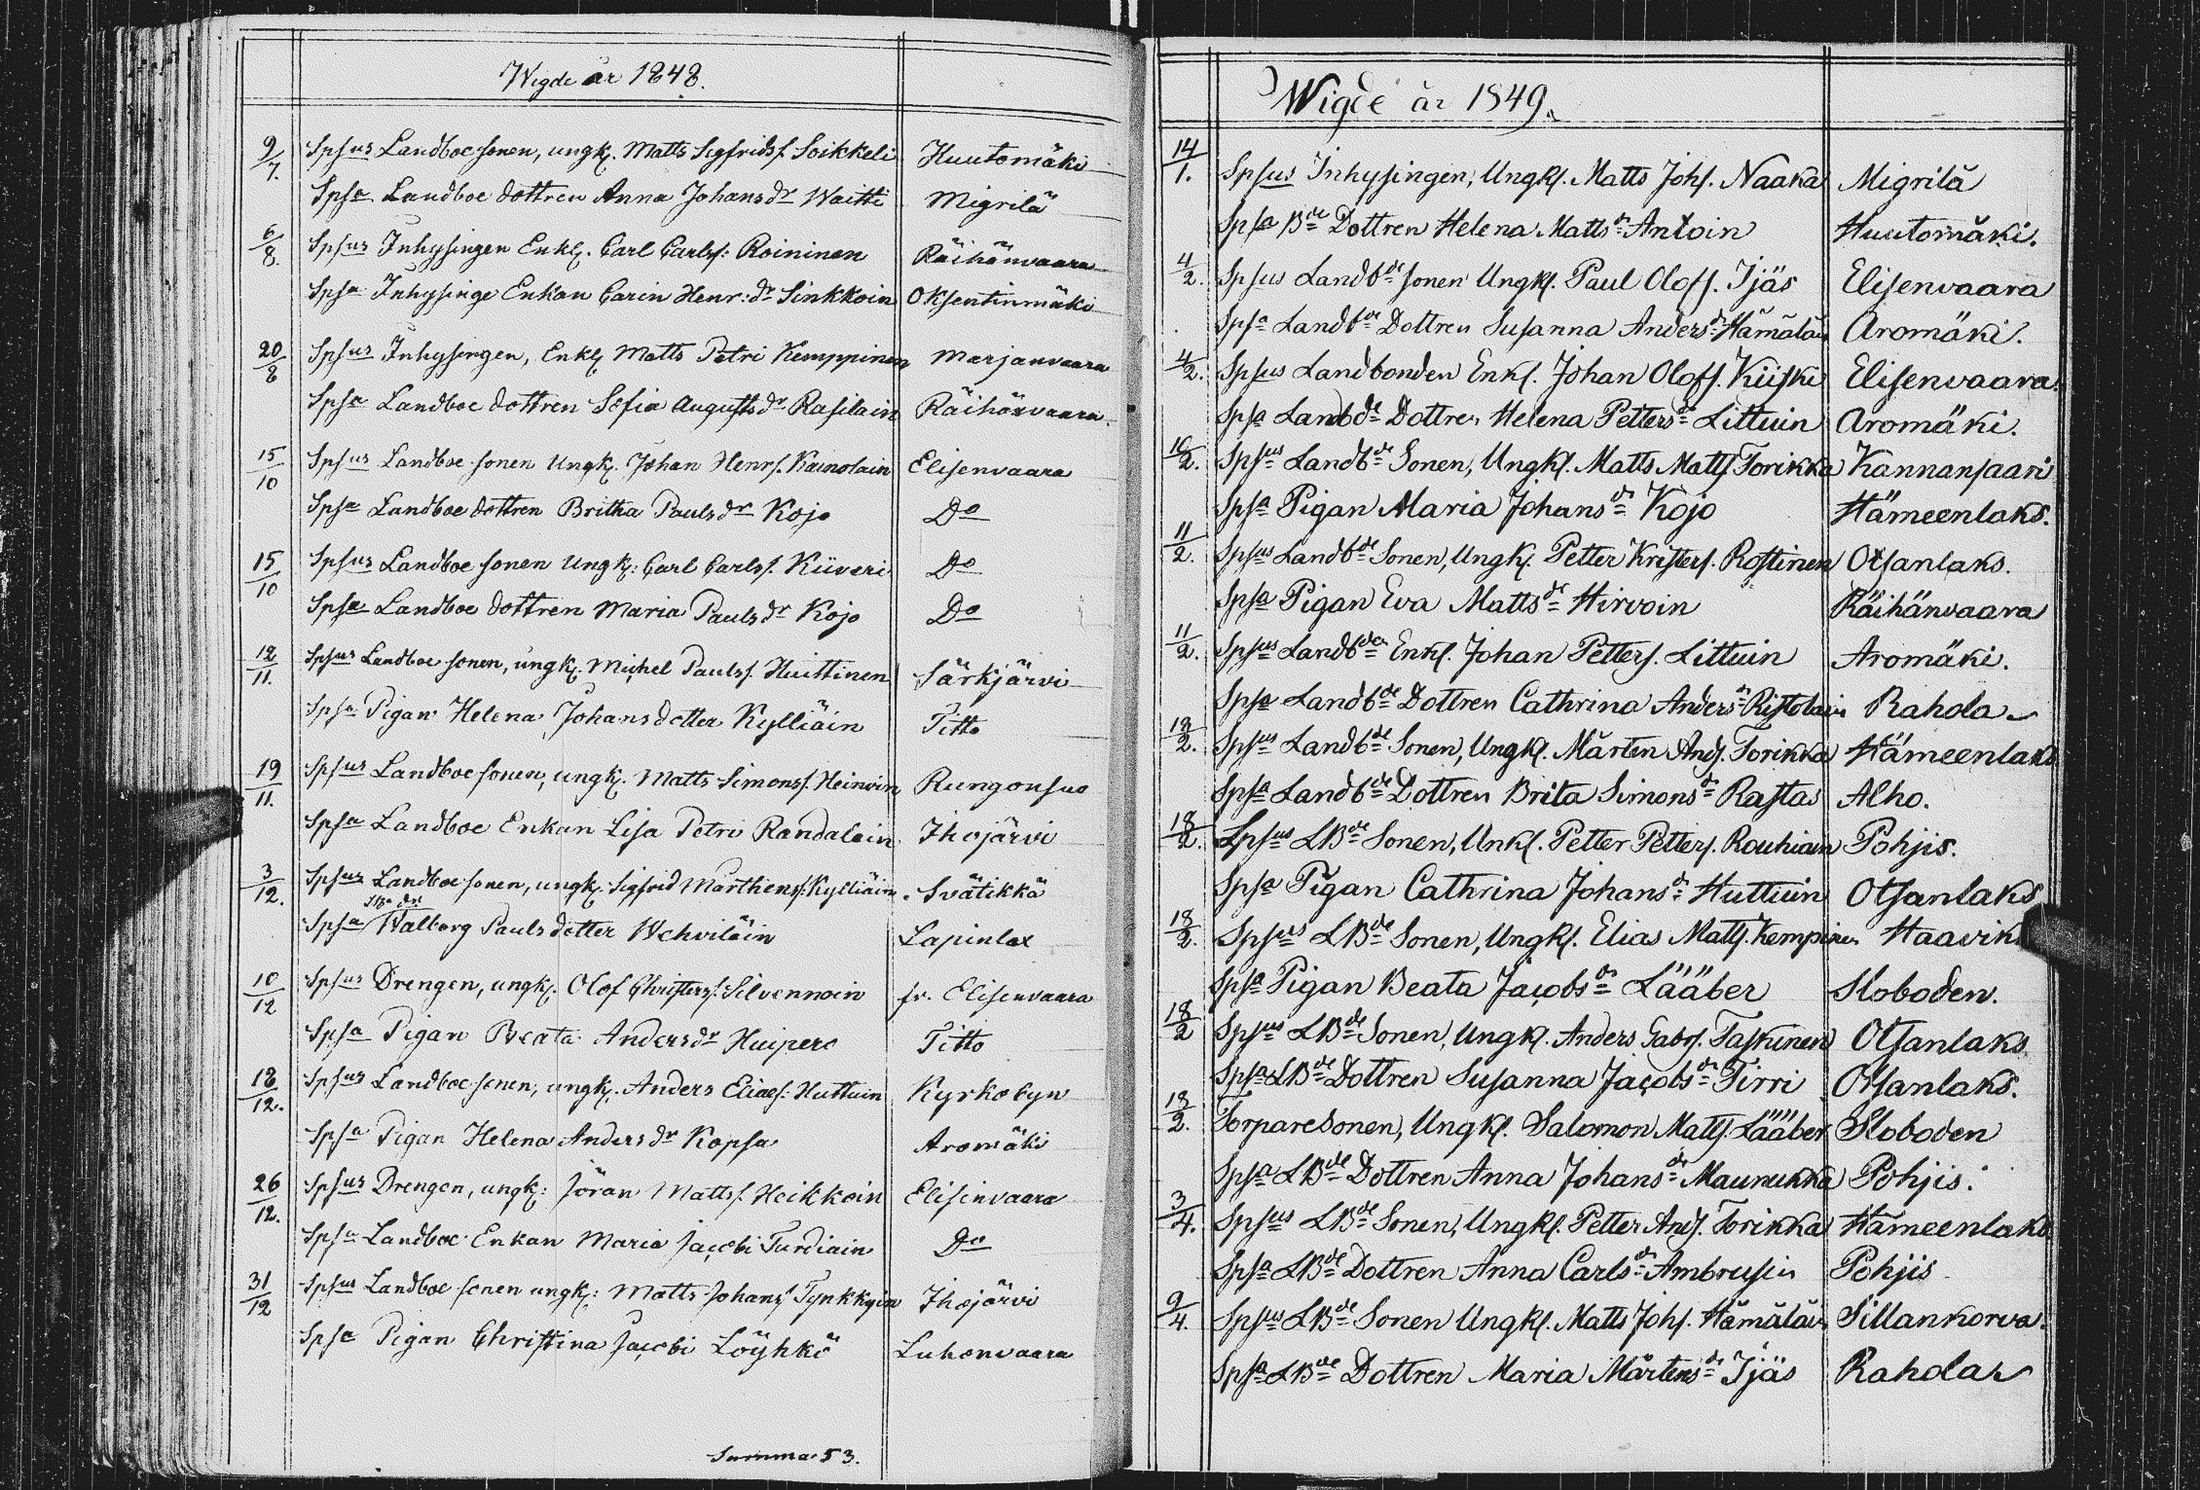 Wigde år 1848.
9/7. Spsus Landboe sonen, ungk. Matts Sigfridsf. Soikkeli Huutomäki
Spsa Landboe dottren Anna Johansdr Waitti Migrilä
6/8. Spsus Inhysingen Enkl. Carl Carlsf: Roininen Räihänvaara
Spsa Inhysinge Enkan Carin Henr:dr Sinkkoin Oksentinmäki
20/8 Spsus Inhysingen, Enkl Matts Petri Kemppinen Marjanvaara
Spsa Landboe dottren Sofia Augustsdr Rasilain Räihänvaara
15/10 Spsus Landboe sonen Ungk. Johan Henrs. Kainolain Elisenvaara
Spsa Landboe dottren Britha Paulsdr Kojo Do
15/10 Spsus Landboe sonen Ungk: Carl Carlsf. Kiiveri Do
Spsa Landboe dottren Maria Paulsdr Kojo Do
12/11. Spsus Landboe sonen, ungk. Michel Paulsf. Huittinen Särkjärvi
Spsa Pigan Helena Johansdotter Kylliäin Titto
19/11. Spsus Landboe sonen, ungk. Matts Simonsf. Heinoin Rungonsuo
Spsa Landboe Enkan Lisa Petri Randalain Ihojärvi
3/12. Spsus Landboe sonen, ungk. Sigfrid Marthensf. Kylliäin Svätikkä
Spsa Walborg Paulsdotter Wehviläin Lapinlax
10/12 Spsus Drengen, ungk: Olof Christersf. Silvennoin fr. Elisenvaara
Spsa Pigan Beata Andersdr Huipero Titto
18/12. Spsus Landboe sonen, ungk. Anders Eliaesf: Huttuin Kyrkobyn
Spsa Pigan Helena Andersdr Kopsa Aromäki
26/12. Spsus Drengen, ungk: Jöran Mattsf. Heikkoin Elisinvaara
Spsa Landboe Enkan Maria Jacobi Turdiain Do
31/12 Spsus Landboe sonen ungk: Matts Johansf Tynkkyin Ihojärvi
Spsa Pigan Christina Jacobi Löyhkö Luhonvaara
Summa 53.
Wigde år 1849.
14/1. Spsus Inhysingen, Ungkf. Matts Johs. Naaka Migrilä
Spsa Bde Dottren Helena Mattsdr Antoin Huutomäki.
4/2. Spsus Landbde sonen Ungkf. Paul Olofs. Ijäs Elisenvaara
Spsa Landbde Dottren Susanna Andersdr Hämäläin Aromäki.
4/2. Spsus Landbonden Enkf. Johan Olofs. Kiiski Elisenvaara.
Spsa Landbde Dottren Helena Pettersdr Littuin Aromäki.
10/2. Spsus Landbde Sonen, Ungkf. Matts Matts Torikka Kannansaari
Spsa Pigan Maria Johansdr Kojo Hämeenlaks.
11/2. Spsus Landbde Sonen, Ungkf. Petter Kristers. Rostinen Otsanlaks.
Spsa Pigan Eva Mattsdr Hirvoin Räihänvaara
11/2. Spsus Landbden Enkf. Johan Petters. Littuin Aromäki.
Spsa Landbde Dottren Cathrina Andersdr Ristolain Rahola
18/2. Spsus Landbde Sonen, Ungkf. Mårten Ands. Torikka Hämeenlaks
Spsa Landbde Dottren Brita Simonsdr Rastas Alho.
18/2. Spsus LBde Sonen, Unkf. Petter Petters. Rouhiain Pohjis.
Spsa Pigan Cathrina Johansdr Huttuin Otsanlaks
18/2. Spsus LBde Sonen, Ungkf. Elias Matts. Kempinen Haavik
Spsa Pigan Beata Jacobsdr Lääber Sloboden.
18/2 Spsus LBde Sonen, Ungkf. Anders Gabrs. Taskinen Otsanlaks
Spsa LBde Dottren Susanna Jacobsdr Tirri Otsanlaks.
18/2. Torparesonen, Ungkf. Salomon Matts. Lääber Sloboden
Spsa LBde Dottren Anna Johansdr Maunukka Pohjis.
3/4. Spsus LBde Sonen, Ungkf. Petter Ands. Torikka Hämeenlaks
Spsa LBde Dottren Anna Carlsdr Ambrusin Pohjis
9/4. Spsus LBde Sonen Ungkf. Matts Johs. Hämäläin Sillankorva.
Spsa LBde Dottren Maria Mårtensdr Ijäs Rahola